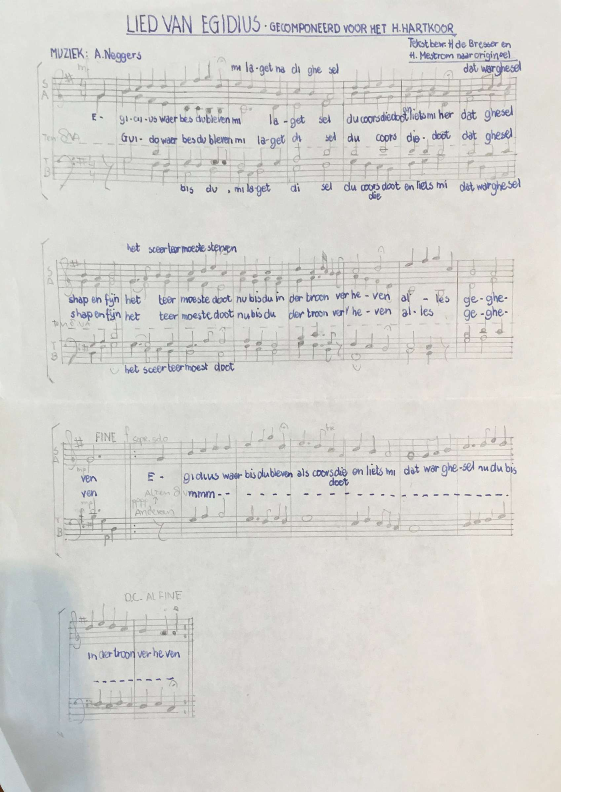 LIED VAN EGIDIUS · GECOMPONEERD VOOR HET H.HARTKOOR
MUZIEK: A.Neggers
Tekstbew: H de Bresser en
H. Mestrom naar origineel
mp
mi la-get na di ghe sel
dat war ghesel
S
A
E - gi-di-us waer bes du bleven mi la-get sel du coors die doot liets mi her dat ghesel
Gui-do waer bes du bleven mi la-get di sel du coors die-doot dat ghesel
T
B
bis du , mi laget di sel du coors doot en liets mi dat war ghesel
die
het sceer teer moeste sterven
S
A
shap en fijn het teer moeste doot nu bis du in der troon ver he - ven al - les ge-ghe-
shap en fijn het teer moeste doot nu bis du der troon ver he - ven al-les ge-ghe-
T
B
het sceer teer moest doot
FINE
Sopr. solo
mp
ven E - gidius waer bis du bleven als coors die en liets mi dat war ghe-sel nu du bis
doot
ven mmm-- - - - - - - - - - -
mp
Anderen
D.C. AL FINE
in der troon ver he ven
- - - - - - - - - -